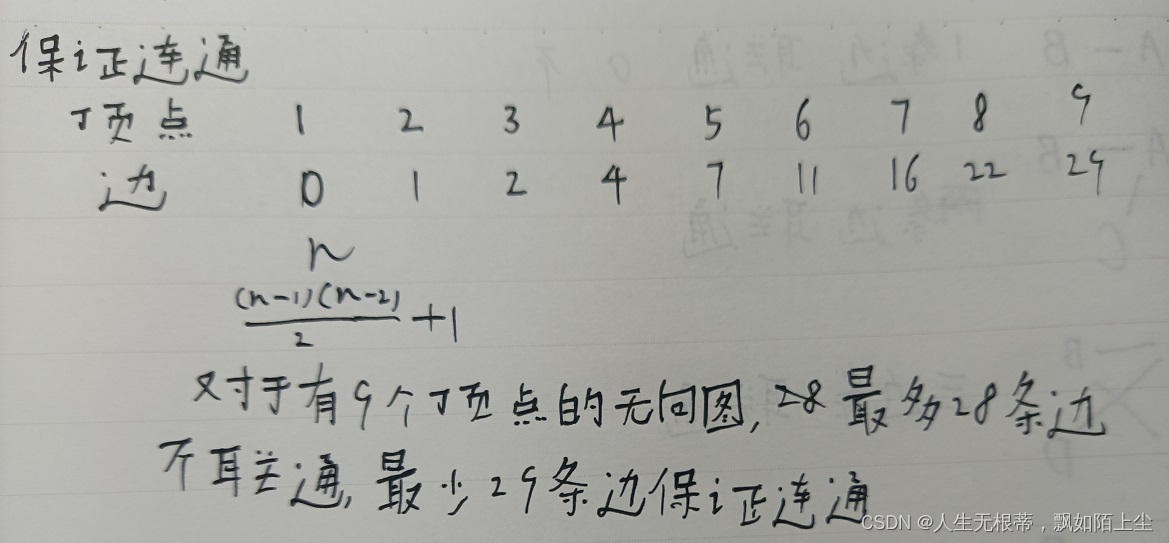 保证连通
顶点 1 2 3 4 5 6 7 8 9
边 0 1 2 4 7 11 16 22 29
n
(n-1)(n-2)/2 +1
对于有9个顶点的无向图,28最多28条边
不联通,最少29条边保证连通
CSDN @人生无根蒂，飘如陌上尘